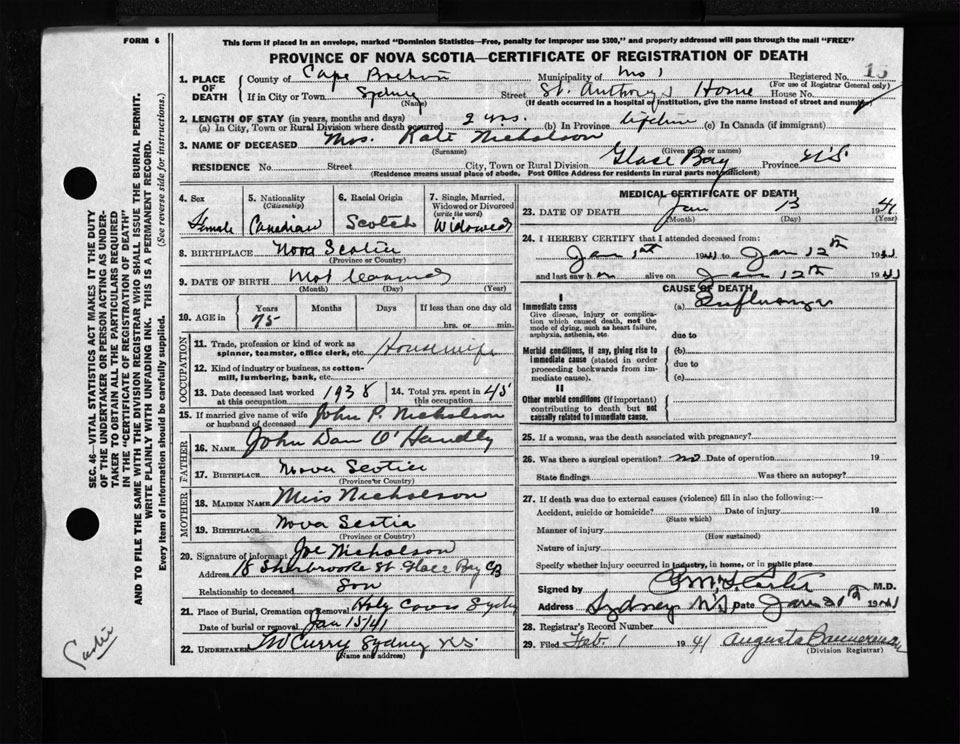 FORM 6
This form if placed in an envelope, marked "Dominion Statistics—Free, penalty for improper use $300," and properly addressed will pass through the mail "FREE"
PROVINCE OF NOVA SCOTIA—CERTIFICATE OF REGISTRATION OF DEATH
1. PLACE OF DEATH
County of Cape Breton Municipality of No 1 Registered No. 15
(For use of Registrar General only)
If in City or Town Sydney Street St. Anthony's Home House No.
(Name) (If death occurred in a hospital or institution, give the name instead of street and number)
2. LENGTH OF STAY (in years, months and days)
(a) In City, Town or Rural Division where death occurred 2 yrs. (b) In Province lifetime (c) In Canada (if immigrant)
3. NAME OF DECEASED Mrs. Kate Nicholson
(Surname) (Given name or names)
RESIDENCE No. Street City, Town or Rural Division Glace Bay Province N.S.
(Residence means usual place of abode. Post Office Address for residents in rural parts not sufficient)
4. Sex
Female
5. Nationality
(Citizenship)
Canadian
6. Racial Origin
Scotch
7. Single, Married, Widowed or Divorced
(write the word)
Widowed
8. BIRTHPLACE Nova Scotia
(Province or Country)
9. DATE OF BIRTH Not
(Month) (Day) (Year)
10. AGE in Years Months Days If less than one day old
75 hrs. or min.
OCCUPATION
11. Trade, profession or kind of work as spinner, teamster, office clerk, etc. Housewife
12. Kind of industry or business, as cotton-mill, lumbering, bank, etc.
13. Date deceased last worked at this occupation 1938
14. Total yrs. spent in this occupation 45
15. If married give name of wife or husband of deceased John P. Nicholson
FATHER
16. Name John Dan O'Handly
17. Birthplace Nova Scotia
(Province or Country)
MOTHER
18. Maiden Name Miss Nicholson
19. Birthplace Nova Scotia
(Province or Country)
20. Signature of informant Joe Nicholson
Address 18 Sherbrooke St. Glace Bay CB
Relationship to deceased Son
21. Place of Burial, Cremation or Removal Holy Cross Sydney
Date of burial or removal Jan 15/41
22. Undertaker McCurry Sydney N.S.
(Name and address)
MEDICAL CERTIFICATE OF DEATH
23. DATE OF DEATH Jan 13 1941
(Month) (Day) (Year)
24. I HEREBY CERTIFY that I attended deceased from:
Jan 1st 1941 to Jan 12th 1941
and last saw h er alive on Jan 12th 1941
CAUSE OF DEATH
I
Immediate cause (a) Influenza
Give disease, injury or complication which caused death, not the mode of dying, such as heart failure, asphyxia, asthenia, etc.
due to
Morbid conditions, if any, giving rise to immediate cause (stated in order proceeding backwards from immediate cause).
(b)
due to
(c)
II
Other morbid conditions (if important) contributing to death but not causally related to immediate cause.
25. If a woman, was the death associated with pregnancy?
26. Was there a surgical operation? no Date of operation 19
State findings Was there an autopsy?
27. If death was due to external causes (violence) fill in also the following:—
Accident, suicide or homicide? Date of injury 19
(State which)
Manner of injury
(How sustained)
Nature of injury
Specify whether injury occurred in industry, in home, or in public place
Signed by M.D.
Address Sydney N.S. Date Jan 30th 1941
28. Registrar's Record Number
29. Filed Feb. 1 1941 Augusta Bannerman
(Division Registrar)
SEC. 46—VITAL STATISTICS ACT MAKES IT THE DUTY
OF THE UNDERTAKER OR PERSON ACTING AS UNDER-
TAKER TO OBTAIN ALL THE PARTICULARS REQUIRED
IN THE "CERTIFICATE OF REGISTRATION OF DEATH"
AND TO FILE THE SAME WITH THE DIVISION REGISTRAR WHO SHALL ISSUE THE BURIAL PERMIT.
WRITE PLAINLY WITH UNFADING INK. THIS IS A PERMANENT RECORD.
Every item of information should be carefully supplied. (See reverse side for instructions.)